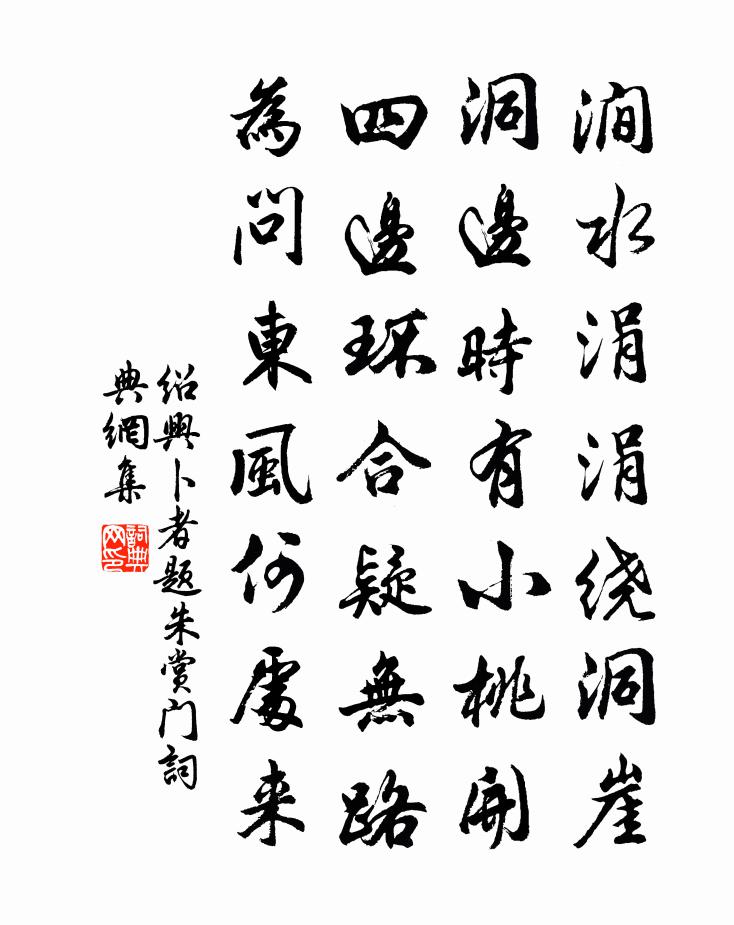 澗水涓涓绕洞崖
洞邊時有小桃開
四邊环合疑無路
為問東風何處来
绍興卜者题朱赏门詞
典網集
詞典
网印